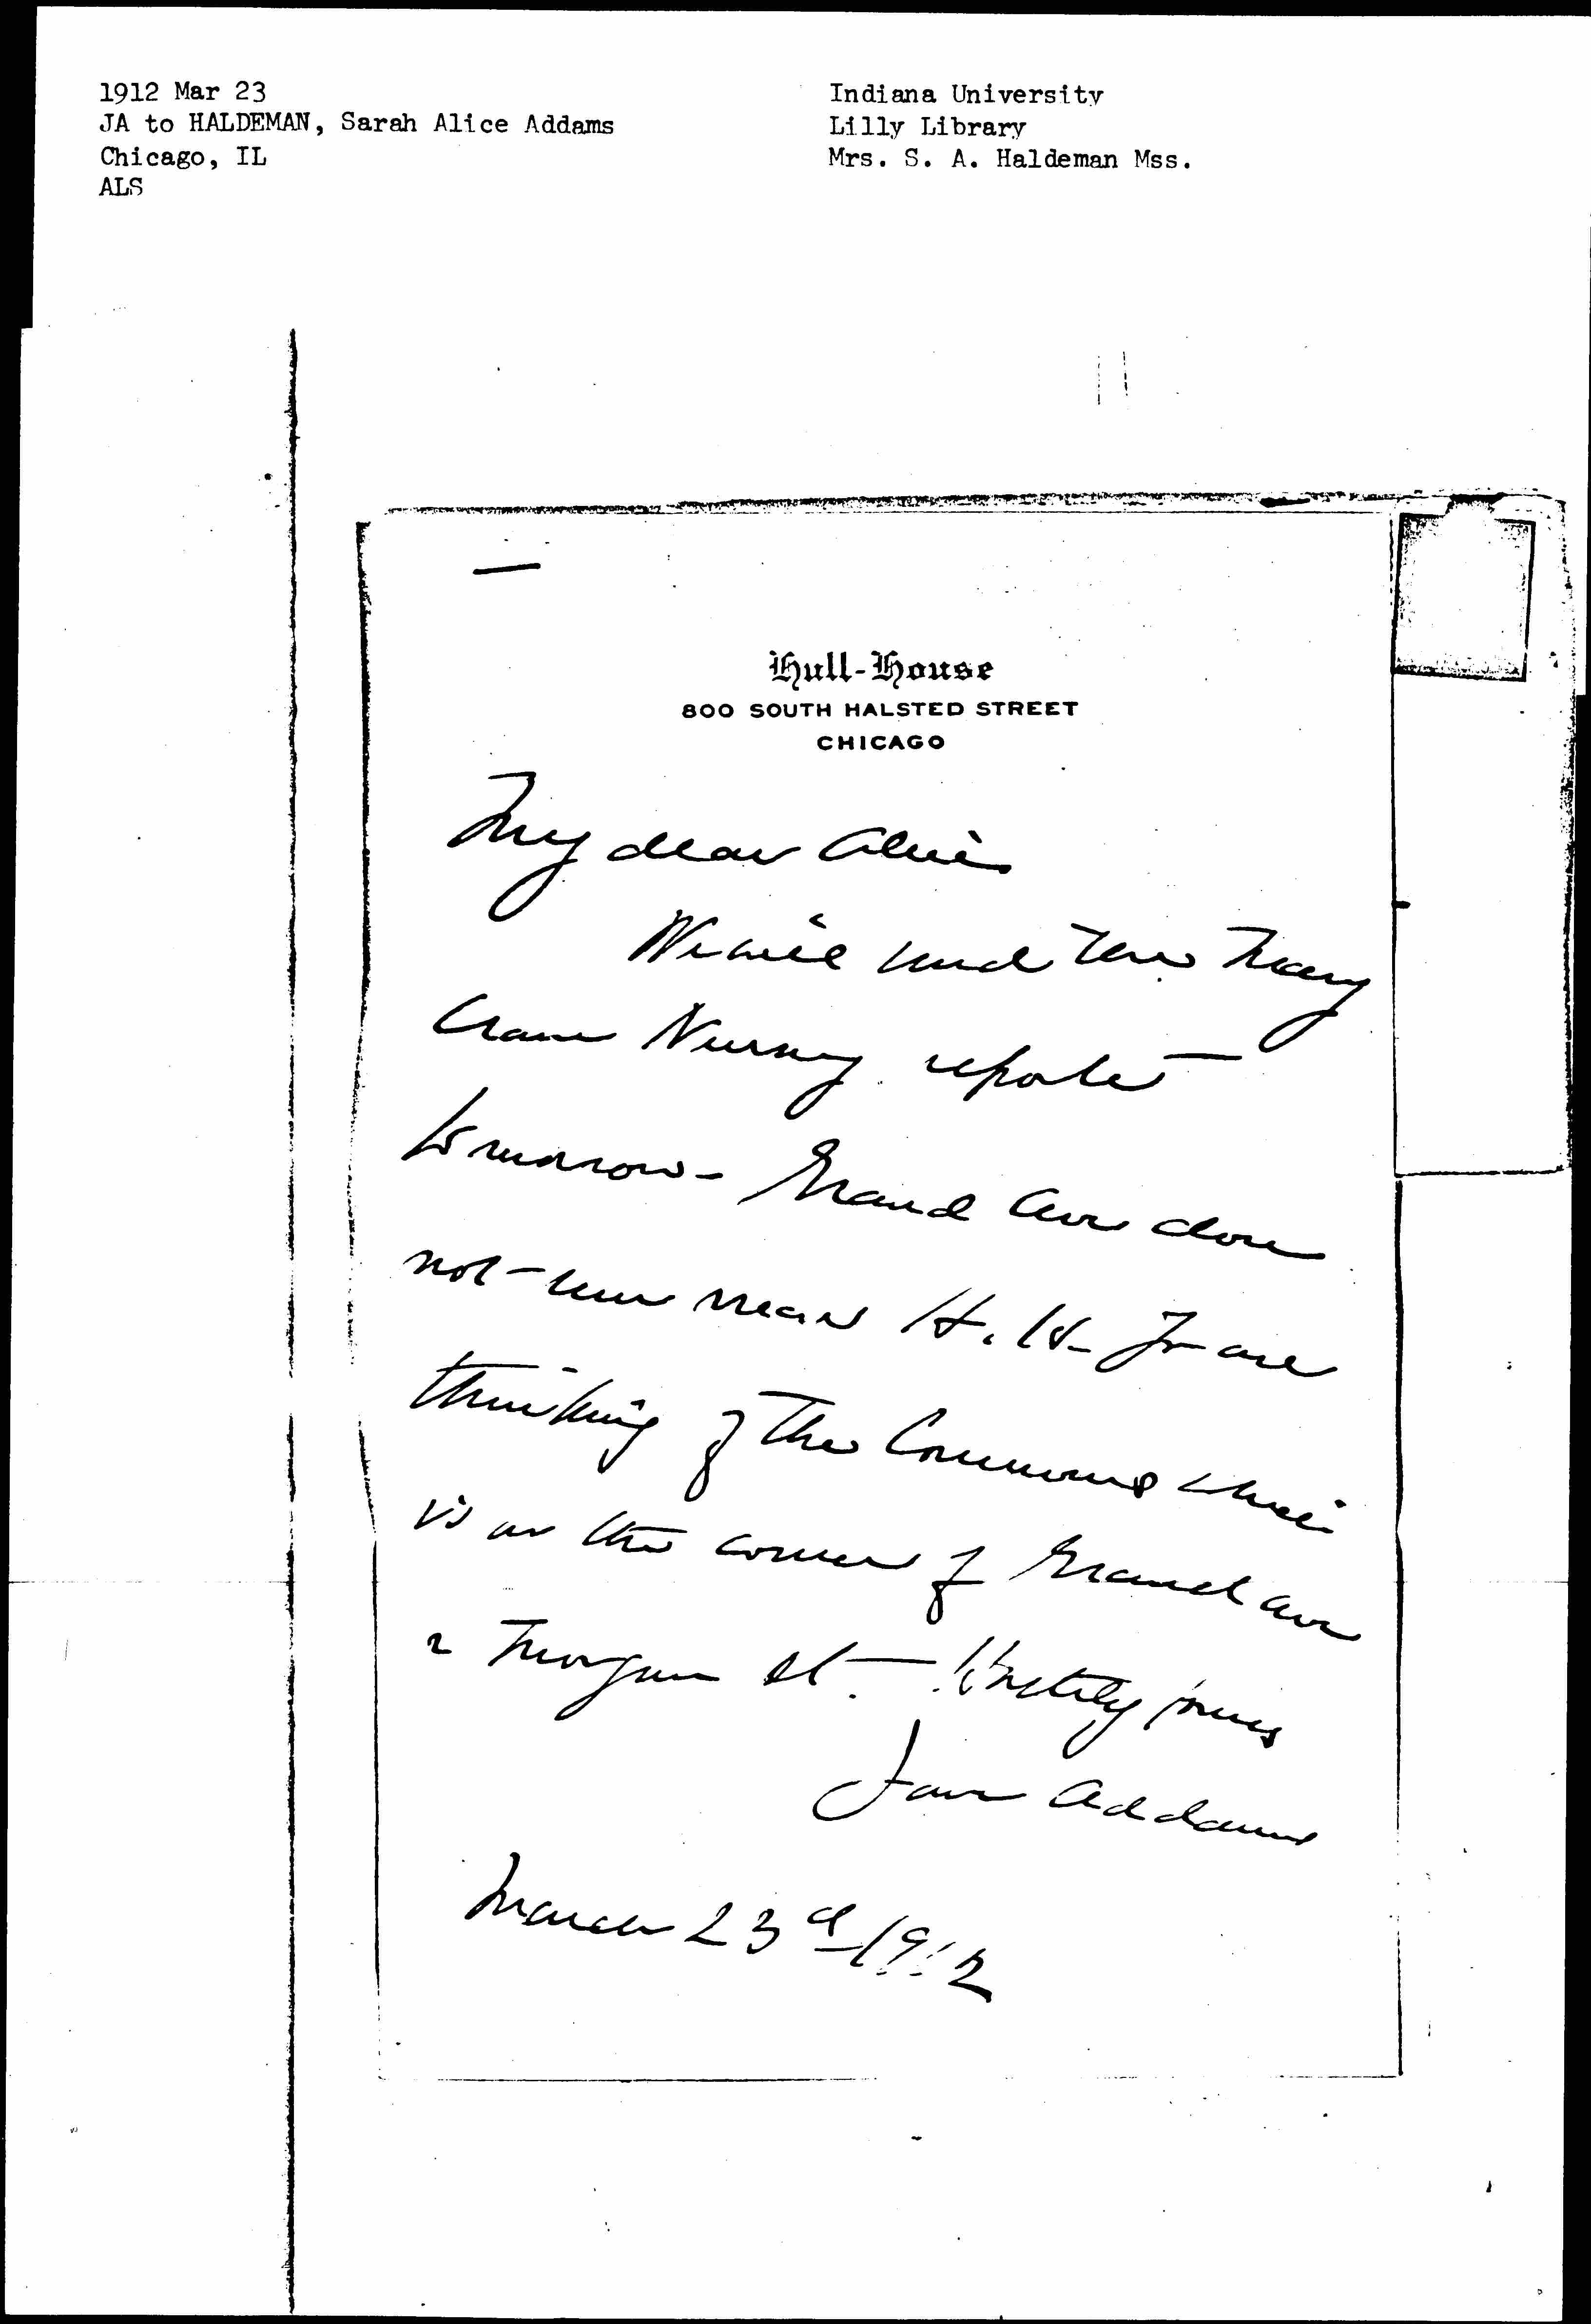 1912 Mar 23
JA to HALDEMAN, Sarah Alice Addams
Chicago, IL
ALS
Indiana University
Lilly Library
Mrs. S. A. Haldeman Mss.
Hull-House
800 SOUTH HALSTED STREET
CHICAGO
My dear Alice
We will send the Mary
Crane Nursery reports
tomorrow - Grand Ave does
not run near H. H. Yr are
thinking of The Commons which
is on the corner of Grand ave
& Morgan St. - Hastily yours
Jane Addams
March 23d 1912